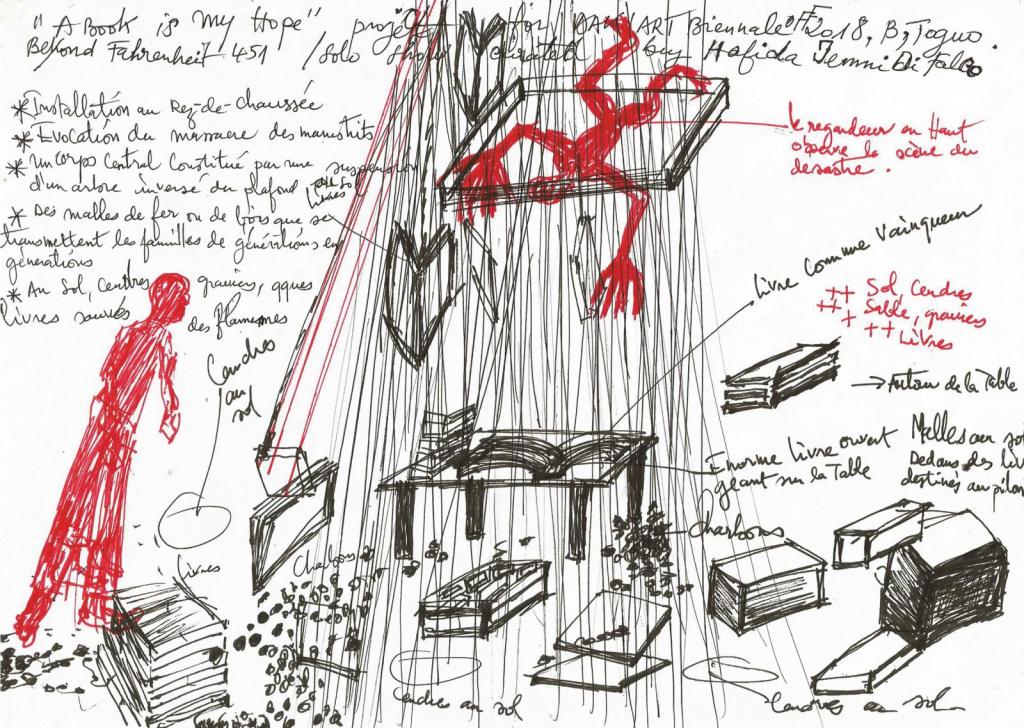 "A Book is My Hope" projet for DAK'ART Biennale OFF 2018, B, Toguo.
Beyond Fahrenheit 451 / Solo Show curated by Hafida Jemni Di Folco
* Installation au Rez-de-chaussée
* Evocation du massacre des manuscrits
* un corps Central Constitué par une suspension
d'un arbre inversé du plafond
livres
* Des malles de fer ou de bois que se
transmettent les familles de générations en
générations
* Au Sol, Cendres, graviers, qques
livres sauvés des flammes
Cendres
au
sol
le regardeur en Haut
observe la scène du
desastre.
livre comme Vainqueur
++ Sol, Cendres
++ Sable, graviers
+
++ Livres
→ Autour de la Table
Enorme livre ouvert
géant sur la Table
Malles au sol
Dedans des liv
destinés au pilon
Charbons
livres
Charbons
Cendres au sol
Cendres au sol